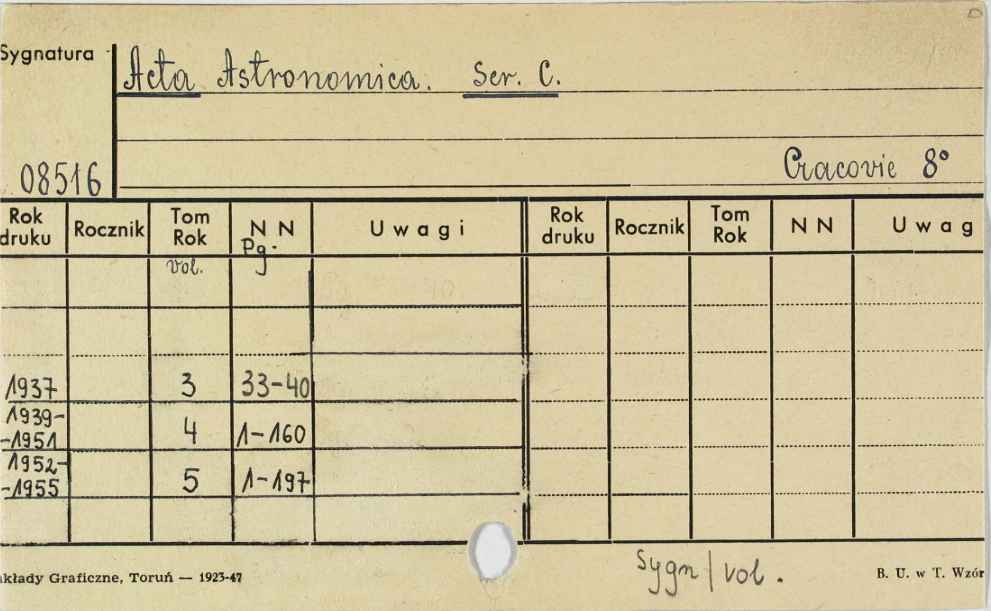 Sygnatura
Acta Astronomica. Ser. C.
08516
Cracovie 8°
Rok druku Rocznik Tom Rok N N U w a g i Rok druku Rocznik Tom Rok N N U w a g
vol. Pg.
1937 3 33-40
1939-
-1951 4 1-160
1952-
-1955 5 1-197
Sygn/vol.
kłady Graficzne, Toruń — 1923-47 B. U. w T. Wzór